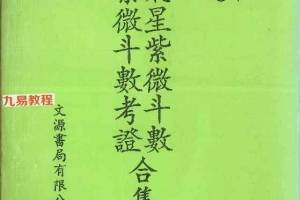 星紫微斗數
紫微斗數考證
合集
文源書局有限公
九易教程